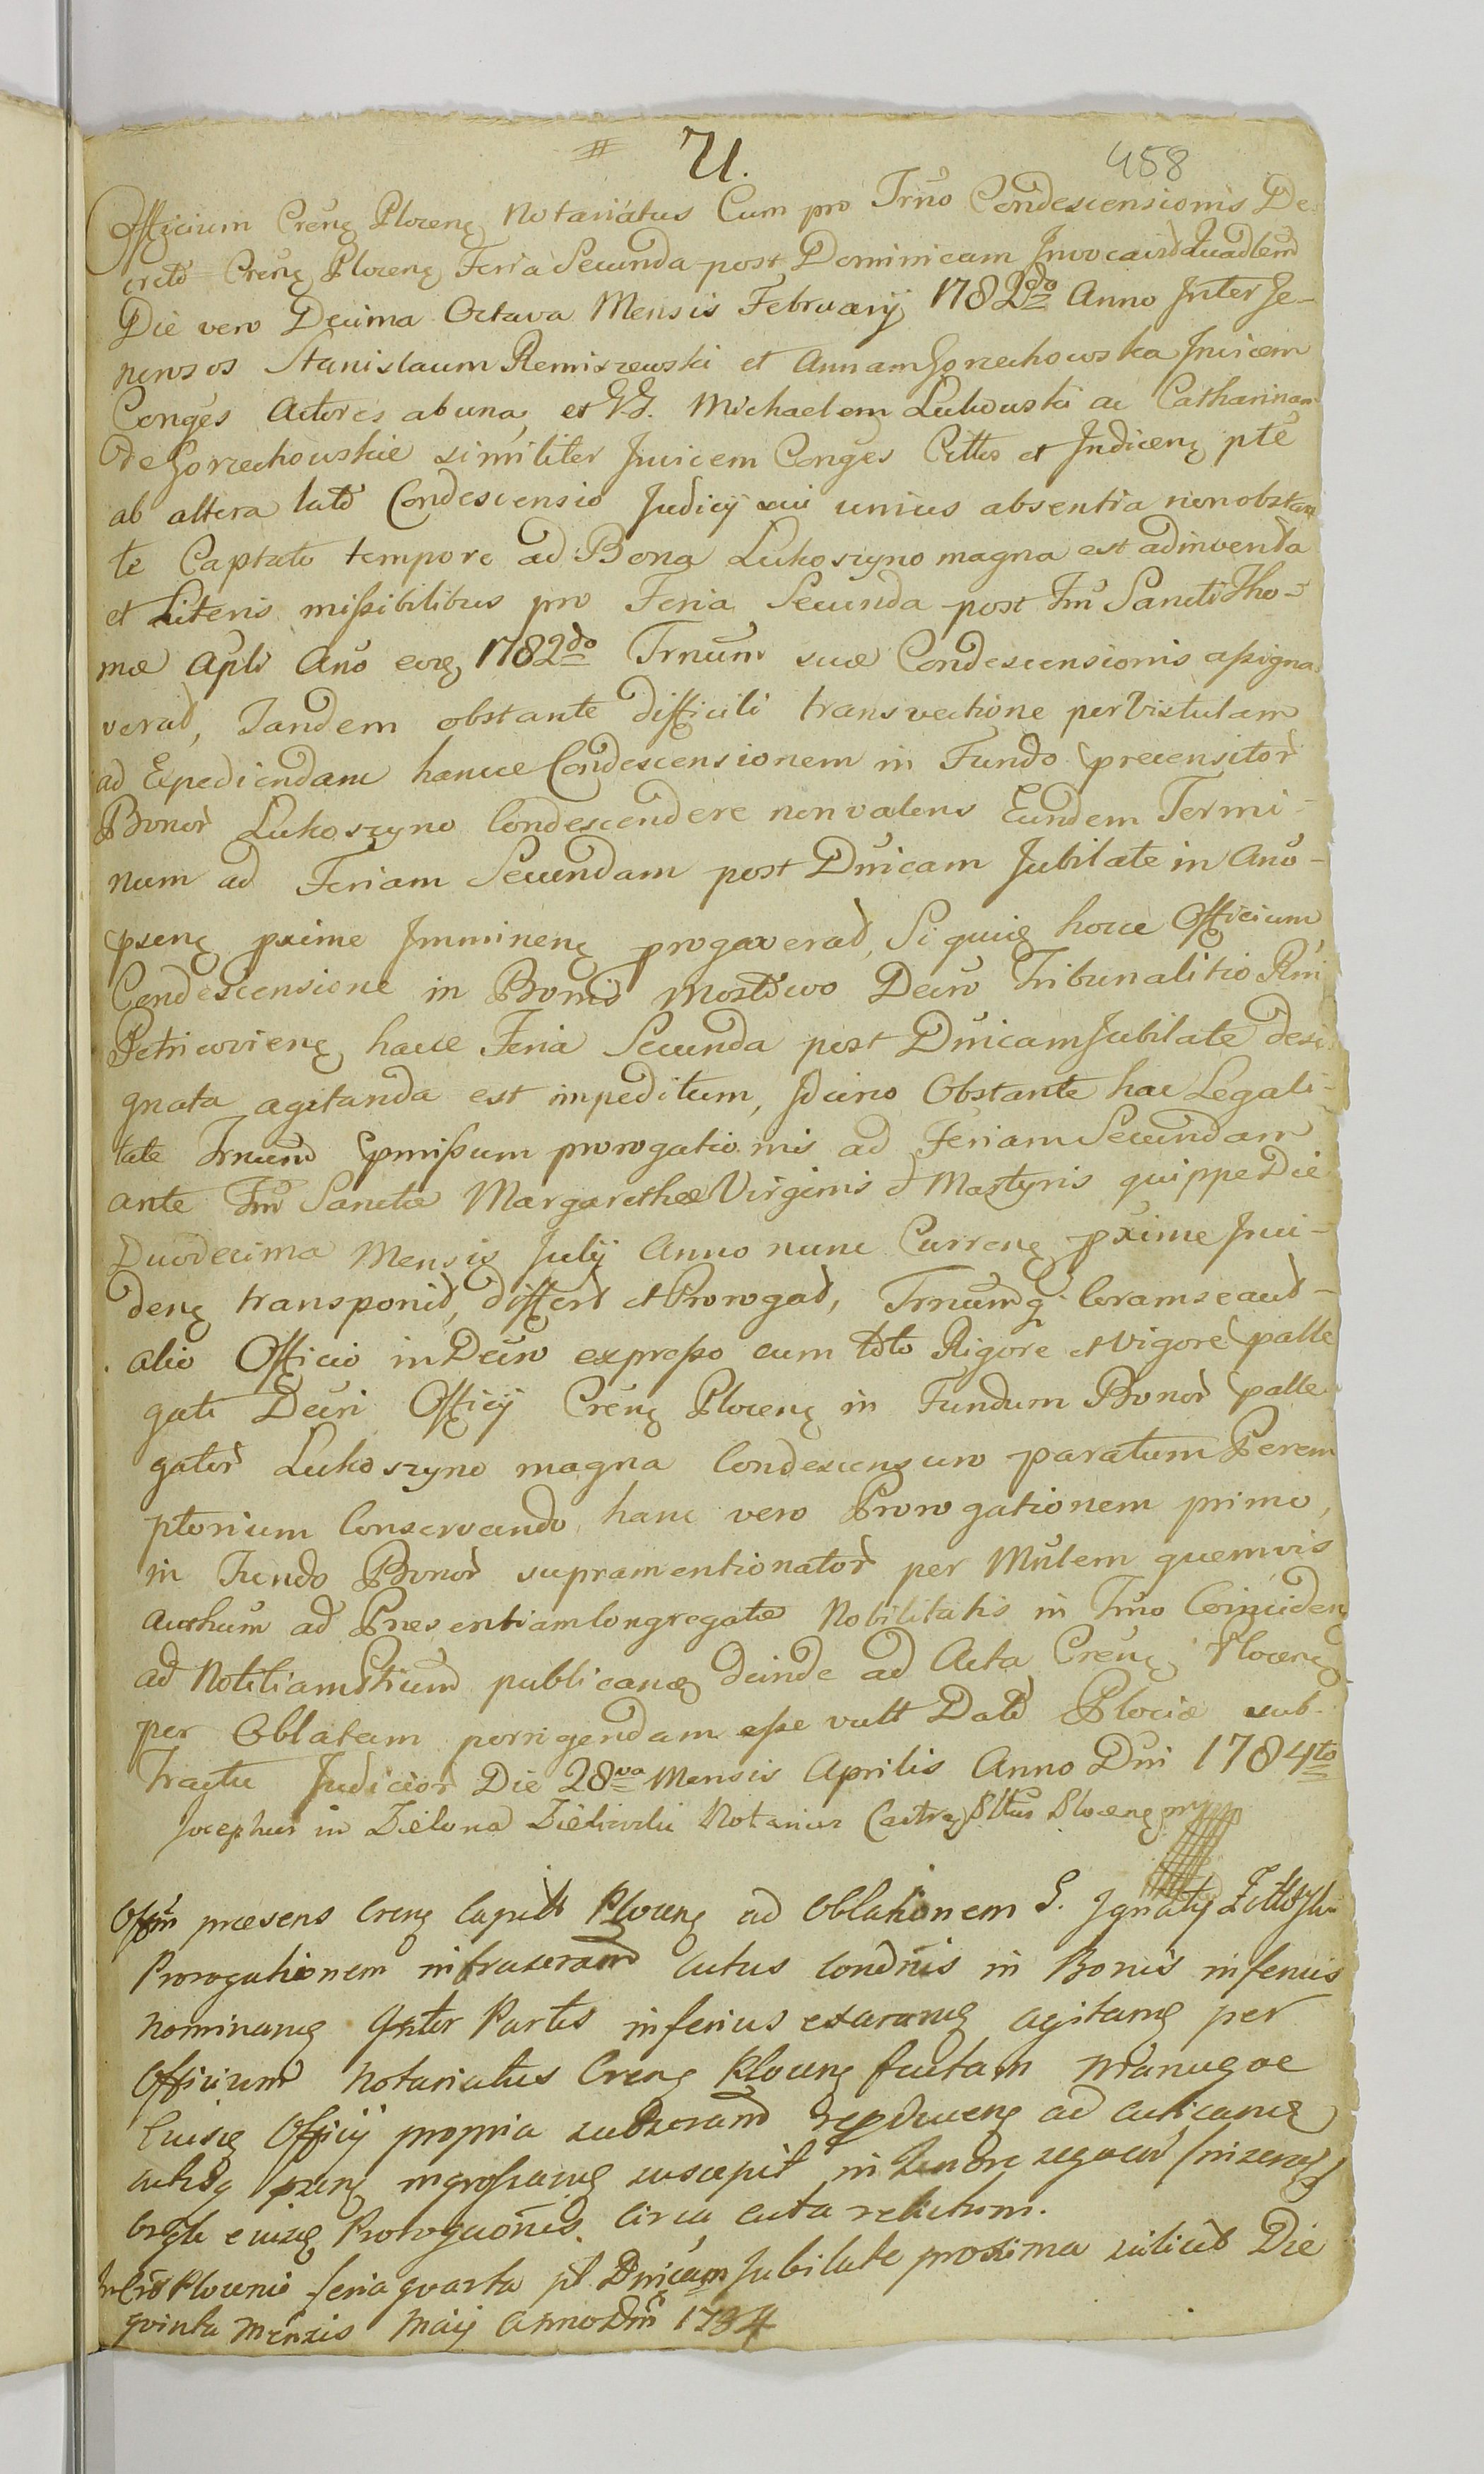 U. 458
Officium Crenʒ Plocenʒ Notariatus Cum pro Trno Condescensionis De
creto Crenʒ Plocenʒ Feria Secunda post Dominicam Invocavit
Die vero Decima Octava Mensis Februarij 1782do Anno Inter Ge-
nerosos Stanislaum Remiszewski et Annam Gorzechowska Invicem
Conges Actores ab una, et GG. Michaelem Lukowski ac Catharinam
de Gorzechowskie similiter Invicem Conges Cittos et pte
ab altera lato Condescensio Judicij sui unius absentia non obstan
te Captato tempore ad Bona Lukoszyno magna est adinventa
et Literis missibilibus pro Feria Secunda post Fm Sancti Tho-
mæ Apli Ano eoʒ 1782do Trnum suæ Condescensionis assigna
verat, Tandem obstante difficili transvectione per Vistulam
ad Expediendam hancce Condescensionem in Fundo precensitor
Bonor Lukoszyno Condescendere non valens Eundem Termi-
num ad Feriam Secundam post Dnicam Jubilate in Ano-
pxenʒ pxime Imminenʒ progaverat, Si quiʒ hocce Officium
Condescensione in Bonis Mostowo Decro Tribunalitio Rni
Petricovienʒ hacce Feria Secunda post Dnicam Jubilate desi
gnata agitanda est impeditum, Idcirco Obstante hac Legali-
tate Trnum pmissum prorogationis ad Feriam Secundam
ante Fm Sanctæ Margarethæ Virginis & Martyris quippe Die
Duodecima Mensis Julij Anno nunc Currenʒ pxime Inci-
denʒ transponit, differt et Prorogat, Trnumq Coram se aut-
alio Officio in Decro expresso cum toto Rigore et vigore palle
gati Decri Officij Crenʒ Plocenʒ in Fundum Bonor palle
gator Lukoszyno magna Condescensuro paratum Perem
ptorium Conservando, hanc vero Prorogationem primo,
in Fundo Bonor supramentionator per Mnlem quemvis
authum ad Præsentiam Congregatæ Nobilitatis in Trno Coinciden
ad Notitiam publicanʒ deinde ad Acta Crenʒ Plocenʒ
per Oblatam porrigendam esse vult Dat Plociæ sub-
Tractu Judicior Die 28va Mensis Aprilis Anno Dni 1784to
Josephus in Zielona Zielinski Notarius Castrʒ Plocenʒ mp
Offm præsens Crenʒ Capit Plocenʒ ad Oblationem G. Ignatij
Prorogationem infrascram actus condnis in Bonis inferius
nominanʒ Inter Partes inferius exaranʒ agitanʒ per
Officium Notariatus Crenʒ Plocenʒ factam manuʒ ac
Cuiusʒ Officij propria subscram reproducenʒ ad acticanʒ
actisq pxenʒ ingrossanʒ suscepit in tenore sequen
Orgle eiusʒ Prorogaonis circa acta relictum.
In Cro Plocensi feria quarta pt Dnicam Jubilate proxima scilicet Die
quinta Mensis Maij Anno Dni 1784